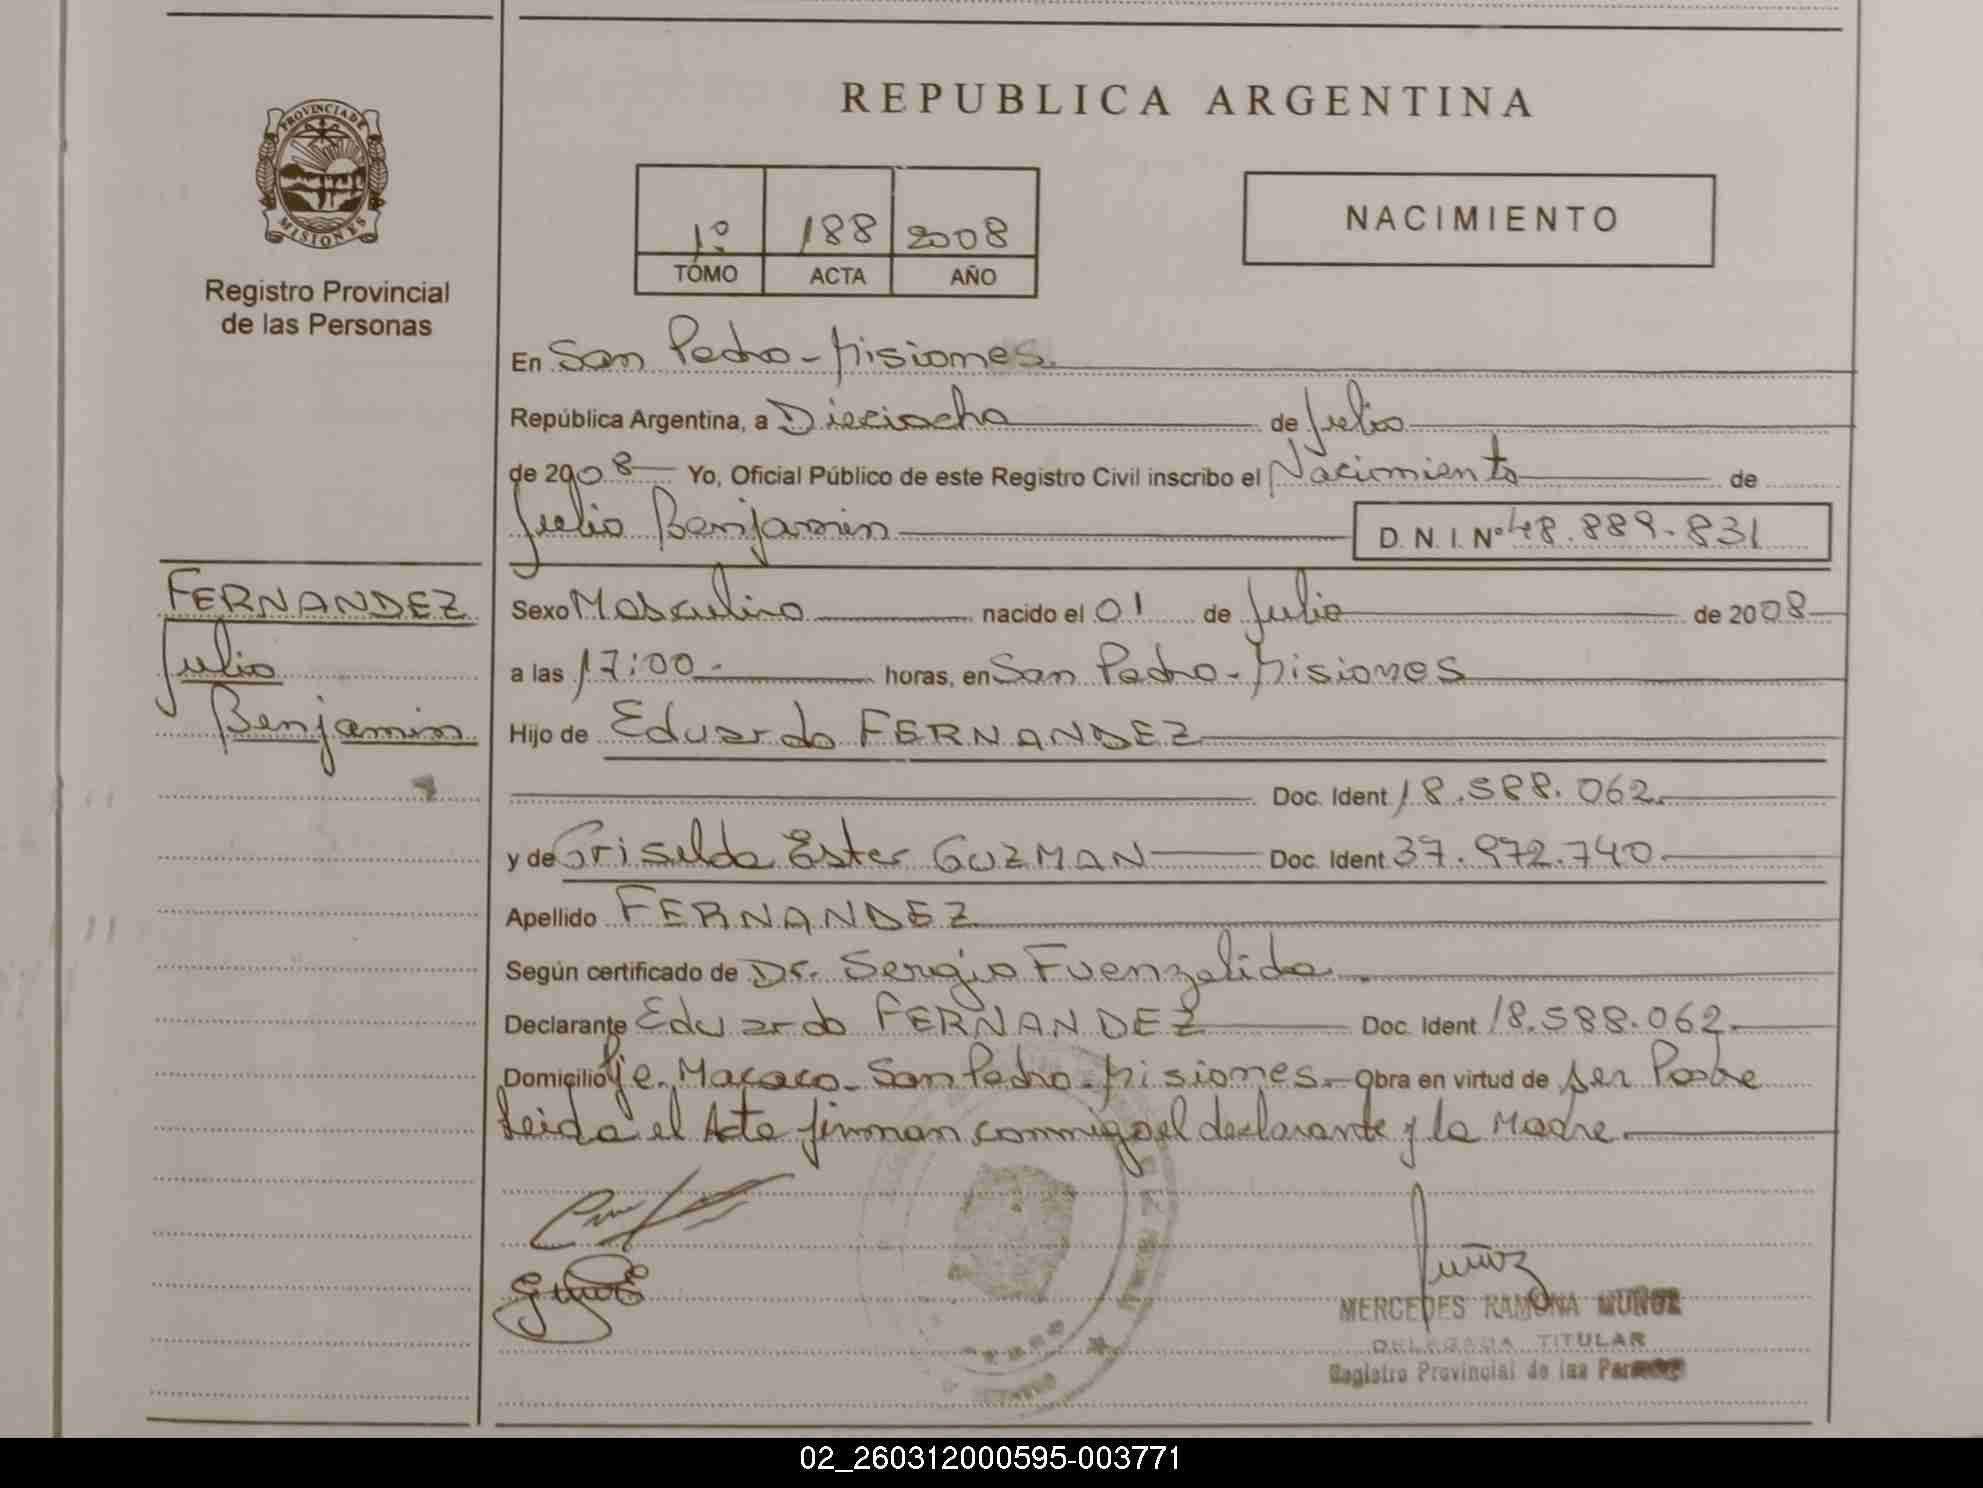 REPUBLICA ARGENTINA
PROVINCIA DE
MISIONES
Registro Provincial
de las Personas
1º 188 2008
TOMO ACTA AÑO
NACIMIENTO
En San Pedro - Misiones
República Argentina, a Dieciocho de Julio
de 2008 Yo, Oficial Público de este Registro Civil inscribo el Nacimiento de
Julio Benjamin D. N. I. Nº 48.889.831
FERNANDEZ
Julio
Benjamin
Sexo Masculino nacido el 01 de Julio de 2008
a las 17:00 horas, en San Pedro - Misiones
Hijo de Eduardo FERNANDEZ
Doc. Ident 18.588.062
y de Griselda Ester GUZMAN Doc. Ident 37.972.740
Apellido FERNANDEZ
Según certificado de Dr. Sergio Fuenzalida
Declarante Eduardo FERNANDEZ Doc. Ident 18.588.062
Domicilio Pje. Macaco - San Pedro - Misiones - Obra en virtud de ser Padre
Leida el Acta firman conmigo el declarante y la Madre
Muñoz
MERCEDES RAMONA MUÑOZ
DELEGADA TITULAR
Registro Provincial de las Personas
02_260312000595-003771